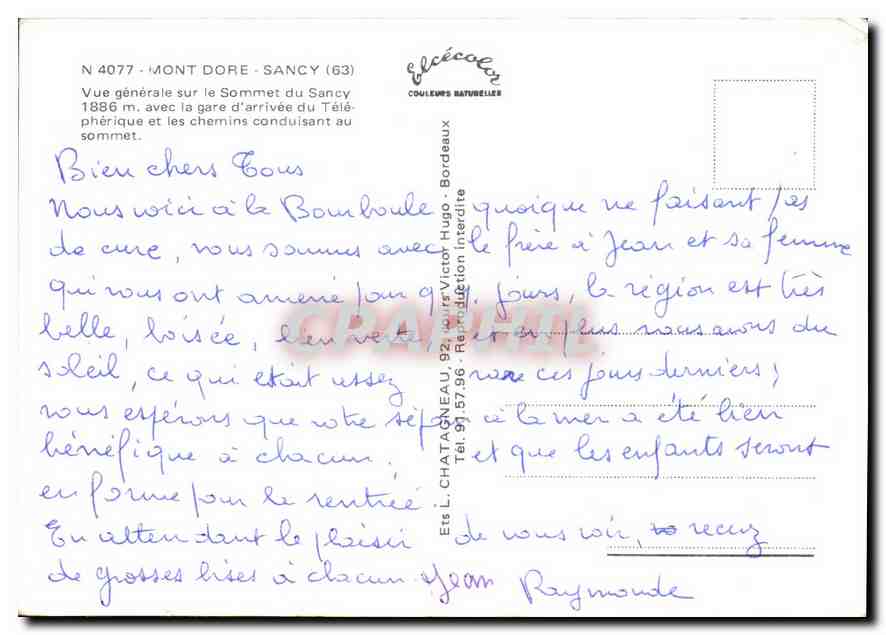 N 4077 - MONT DORE - SANCY (63)
Vue générale sur le Sommet du Sancy
1886 m. avec la gare d'arrivée du Télé-
phérique et les chemins conduisant au
sommet.
Elcécolor
COULEURS NATURELLES
Ets L. CHATAGNEAU, 92, cours Victor Hugo - Bordeaux
Tél. 91.57.96 - Reproduction interdite
Bien chers Tous
Nous voici à la Bourboule quoique ne faisant pas
de cure, nous sommes avec le frère à Jean et sa femme
qui nous ont amené pour qq. jours, la région est très
belle, boisée, bien verte, et en plus nous avons du
soleil, ce qui était assez rare ces jours derniers ;
nous espérons que votre séjour à la mer a été bien
bénéfique à chacun, et que les enfants seront
en forme pour la rentrée.
En attendant le plaisir de vous voir, recevez
de grosses bises à chacun. Jean Raymonde
CPAPHIL